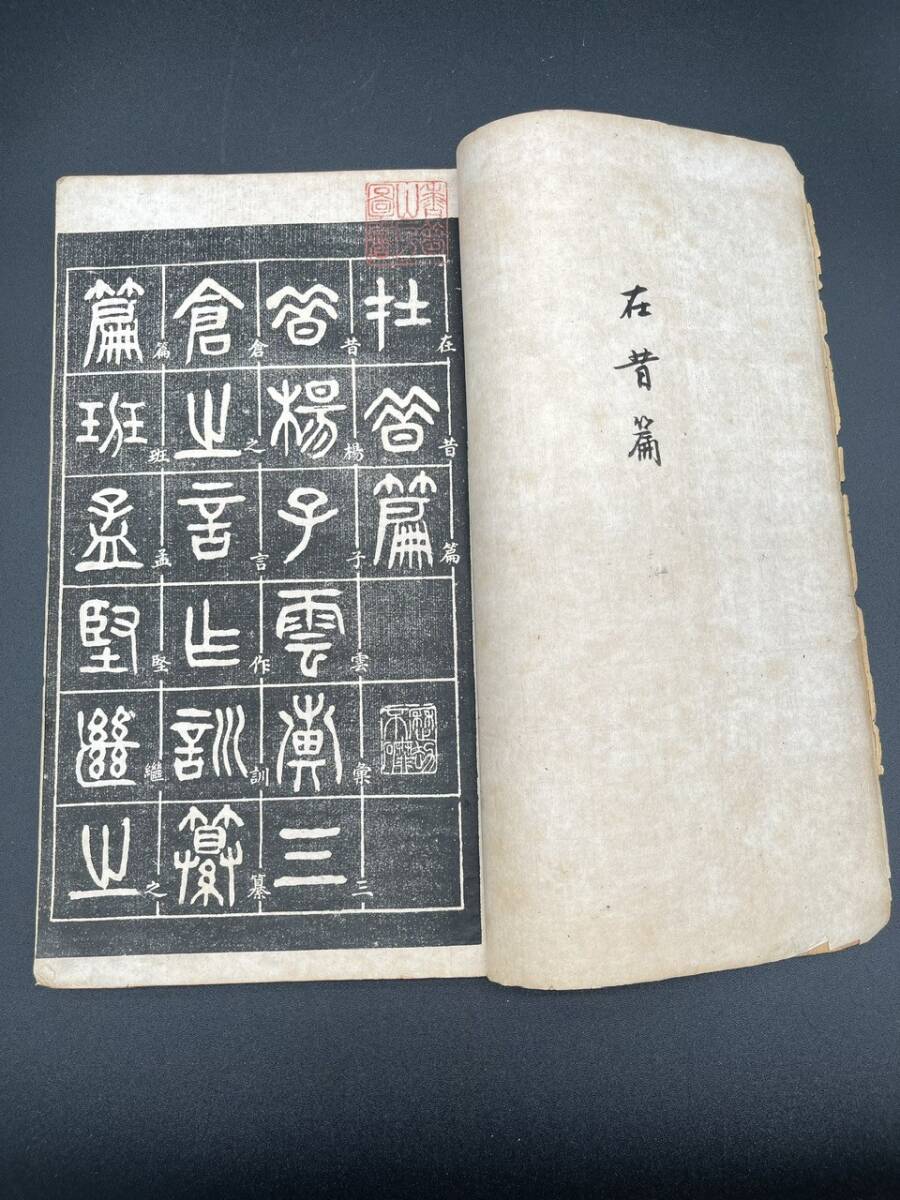 在昔篇
在昔篇
在昔篇
昔楊子雲彙三
昔楊子雲彙三
倉之言作訓纂
倉之言作訓纂
篇班孟堅繼之
篇班孟堅繼之